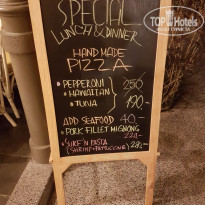 SPECIAL
LUNCH & DINNER
HAND MADE
PIZZA
• PEPPERONI 250
• HAWAIIAN
• TUNA 190.-
ADD SEAFOOD 40.-
• PORK FILLET MIGNONG
220.-
• SURF'N PASTA
(SHRIMP + FETTUCCINE) 280.-
TopHotels